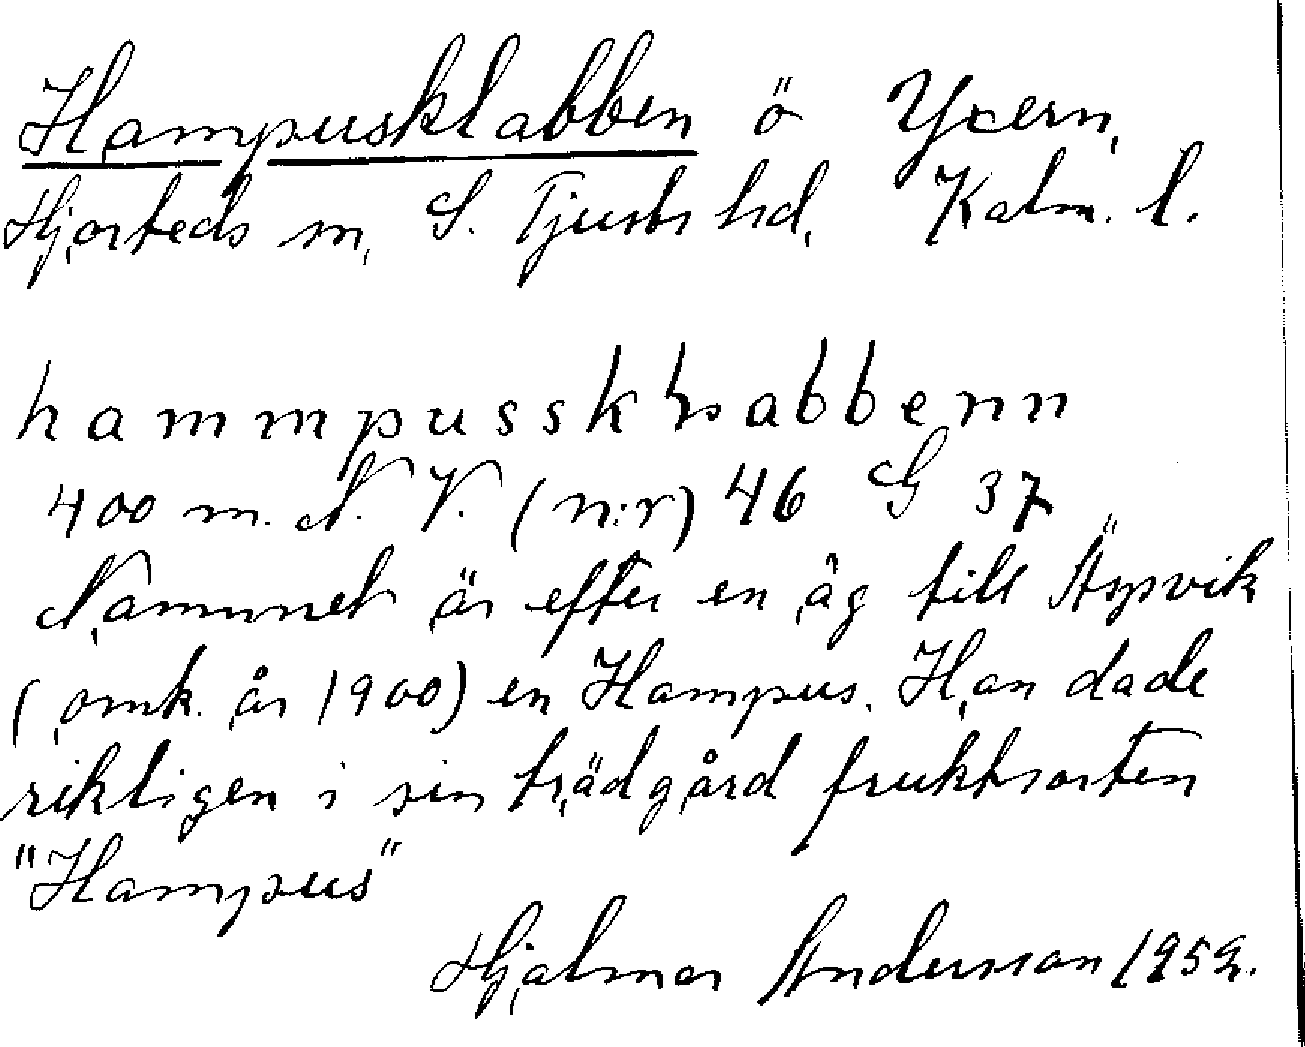 Hampusklabben ö Yxern,
Hjorteds sn, S. Tjusts hd, Kalm. l.
hammpusskhabbenn
400 m. N. V. (n:r) 46 G 37
Namnet är efter en äg till Äspvik
(omk. år 1900) en Hampus. Han dade
rikligen i sin trädgård fruktsorten
"Hampus"
Hjalmar Andersson 1959.